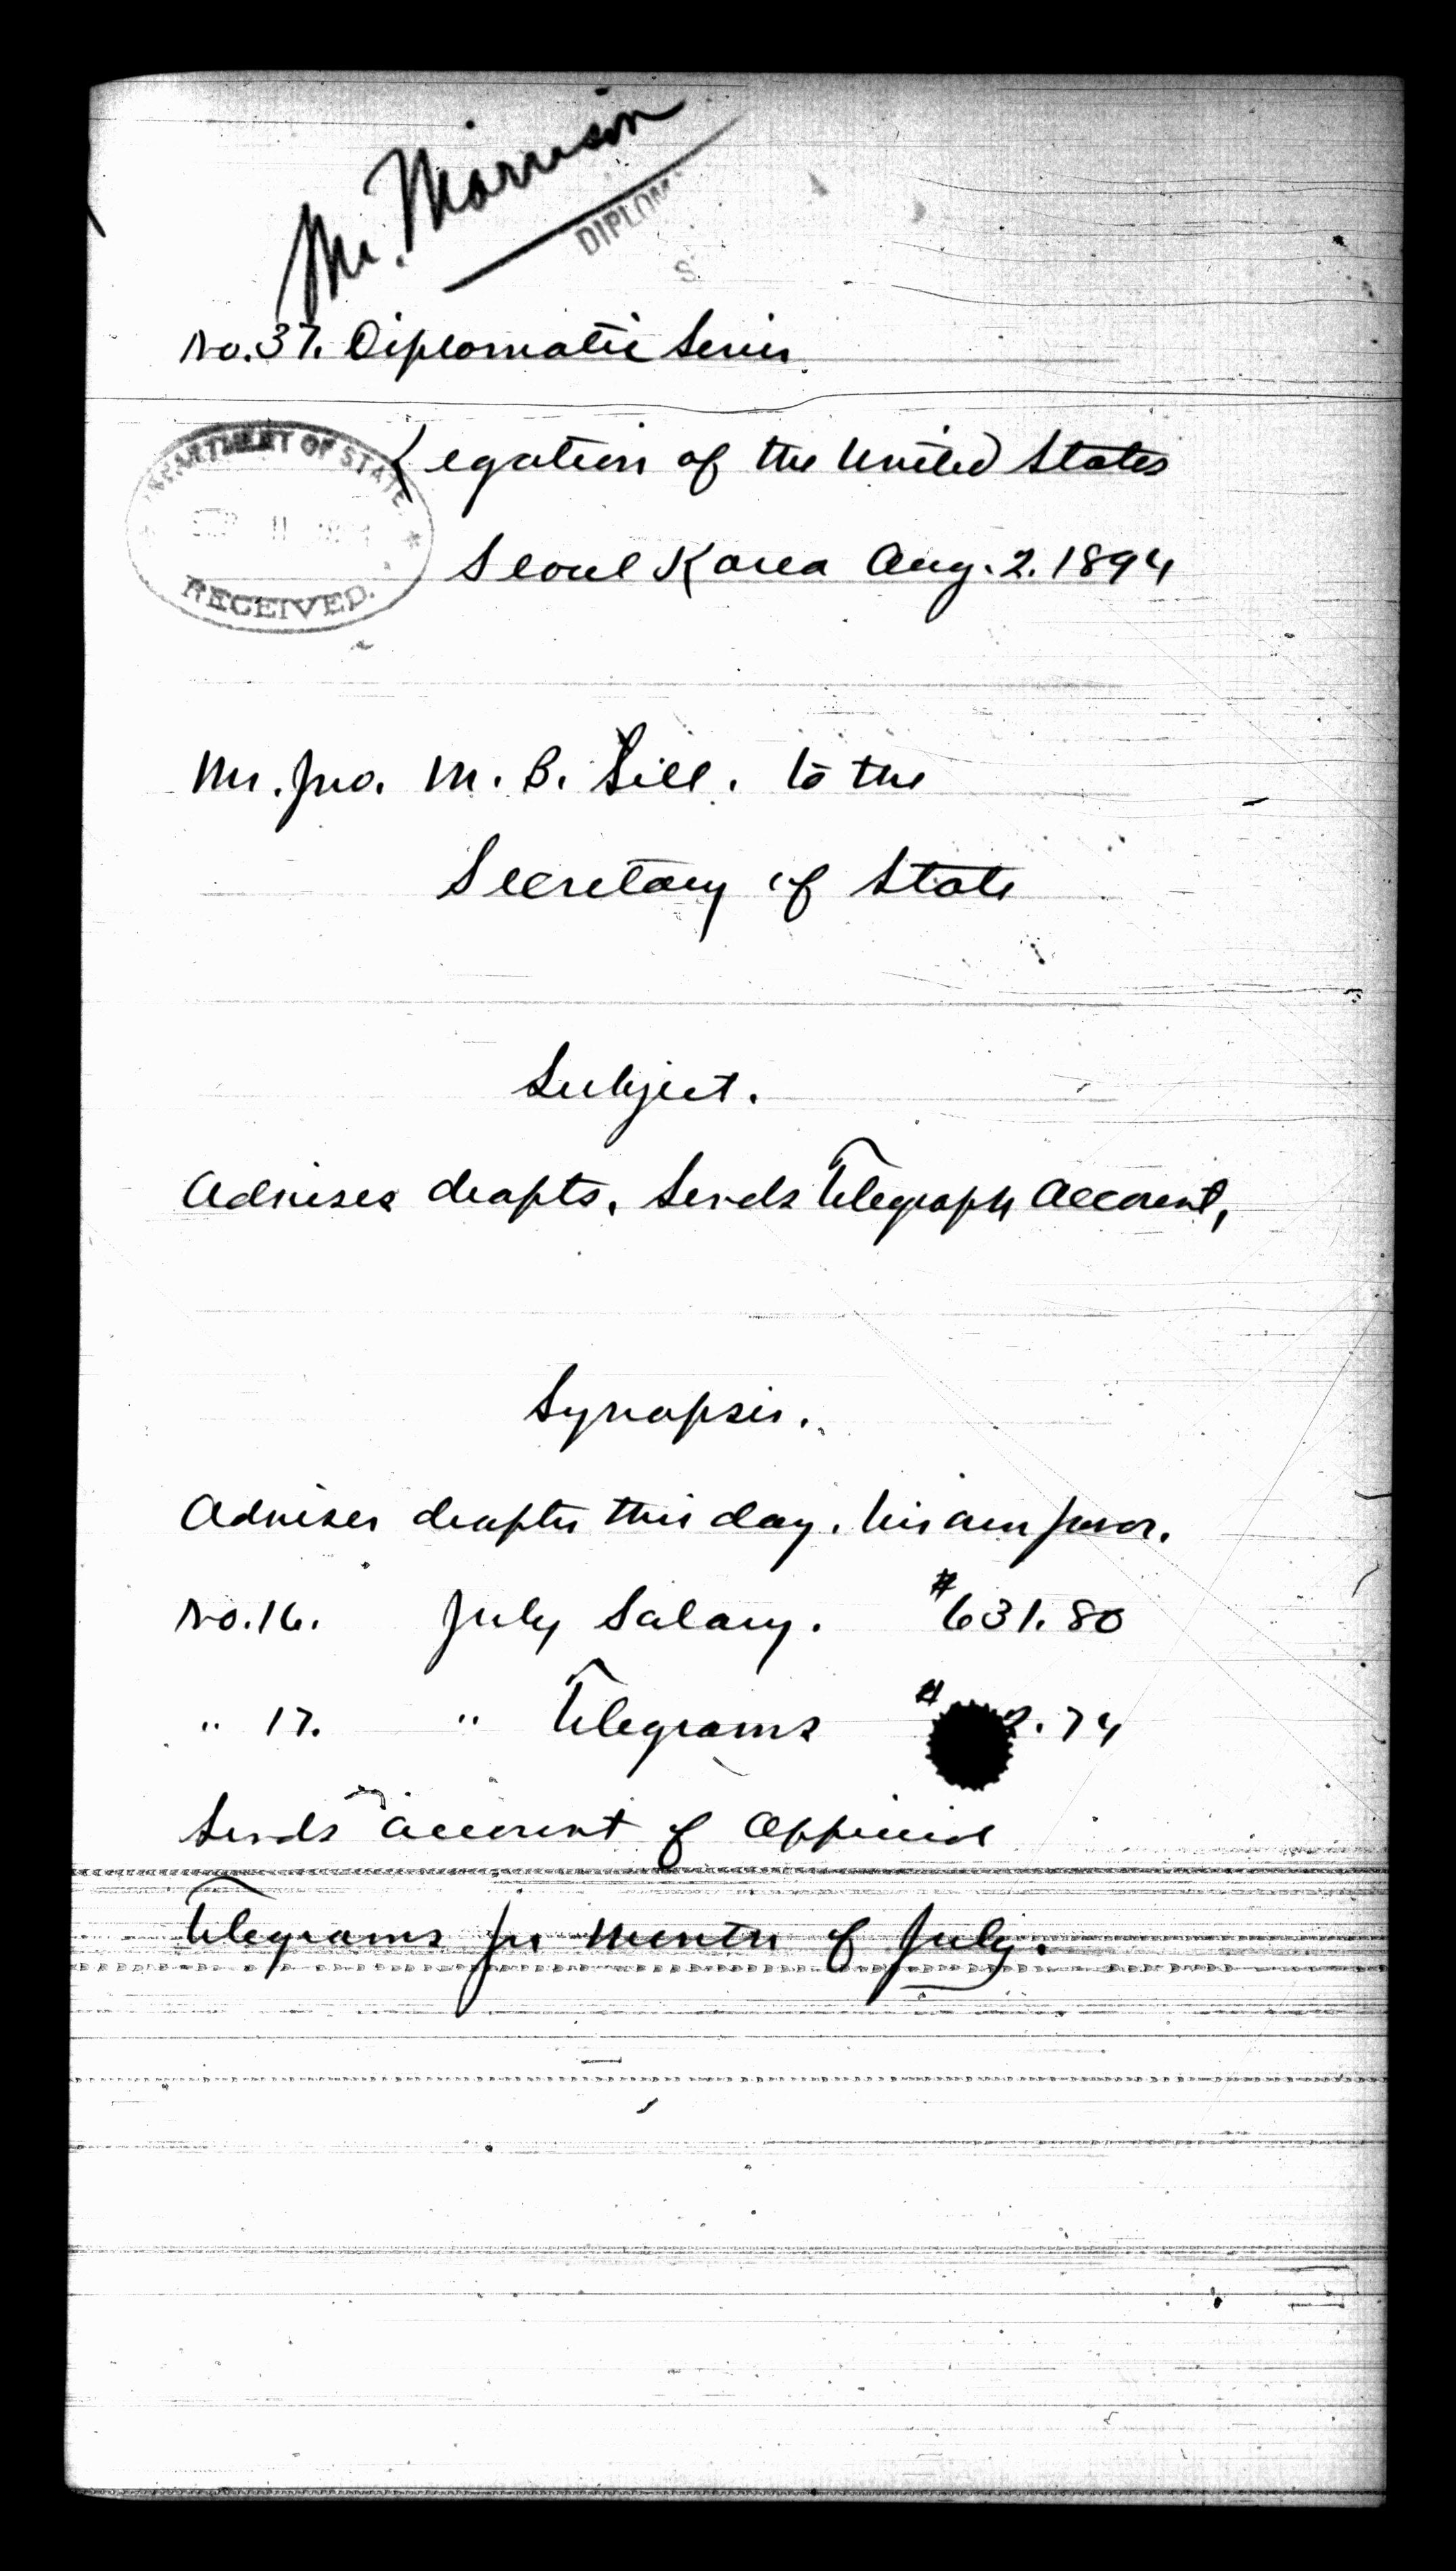 Mr. Morrison
DIPLOM
No. 37. Diplomatic Series
DEPARTMENT OF STATE
RECEIVED.
Legation of the United States
Seoul Korea Aug. 2. 1894
Mr. Jno. M. B. Sill. to the
Secretary of State
Subject.
Advises drafts. Sends Telegraph Account,
Synopsis.
Advises drafts this day. his own favor.
No. 16. July Salary. $631.80
" 17. " Telegrams $ 2.74
Sends account of Official
Telegrams for month of July.